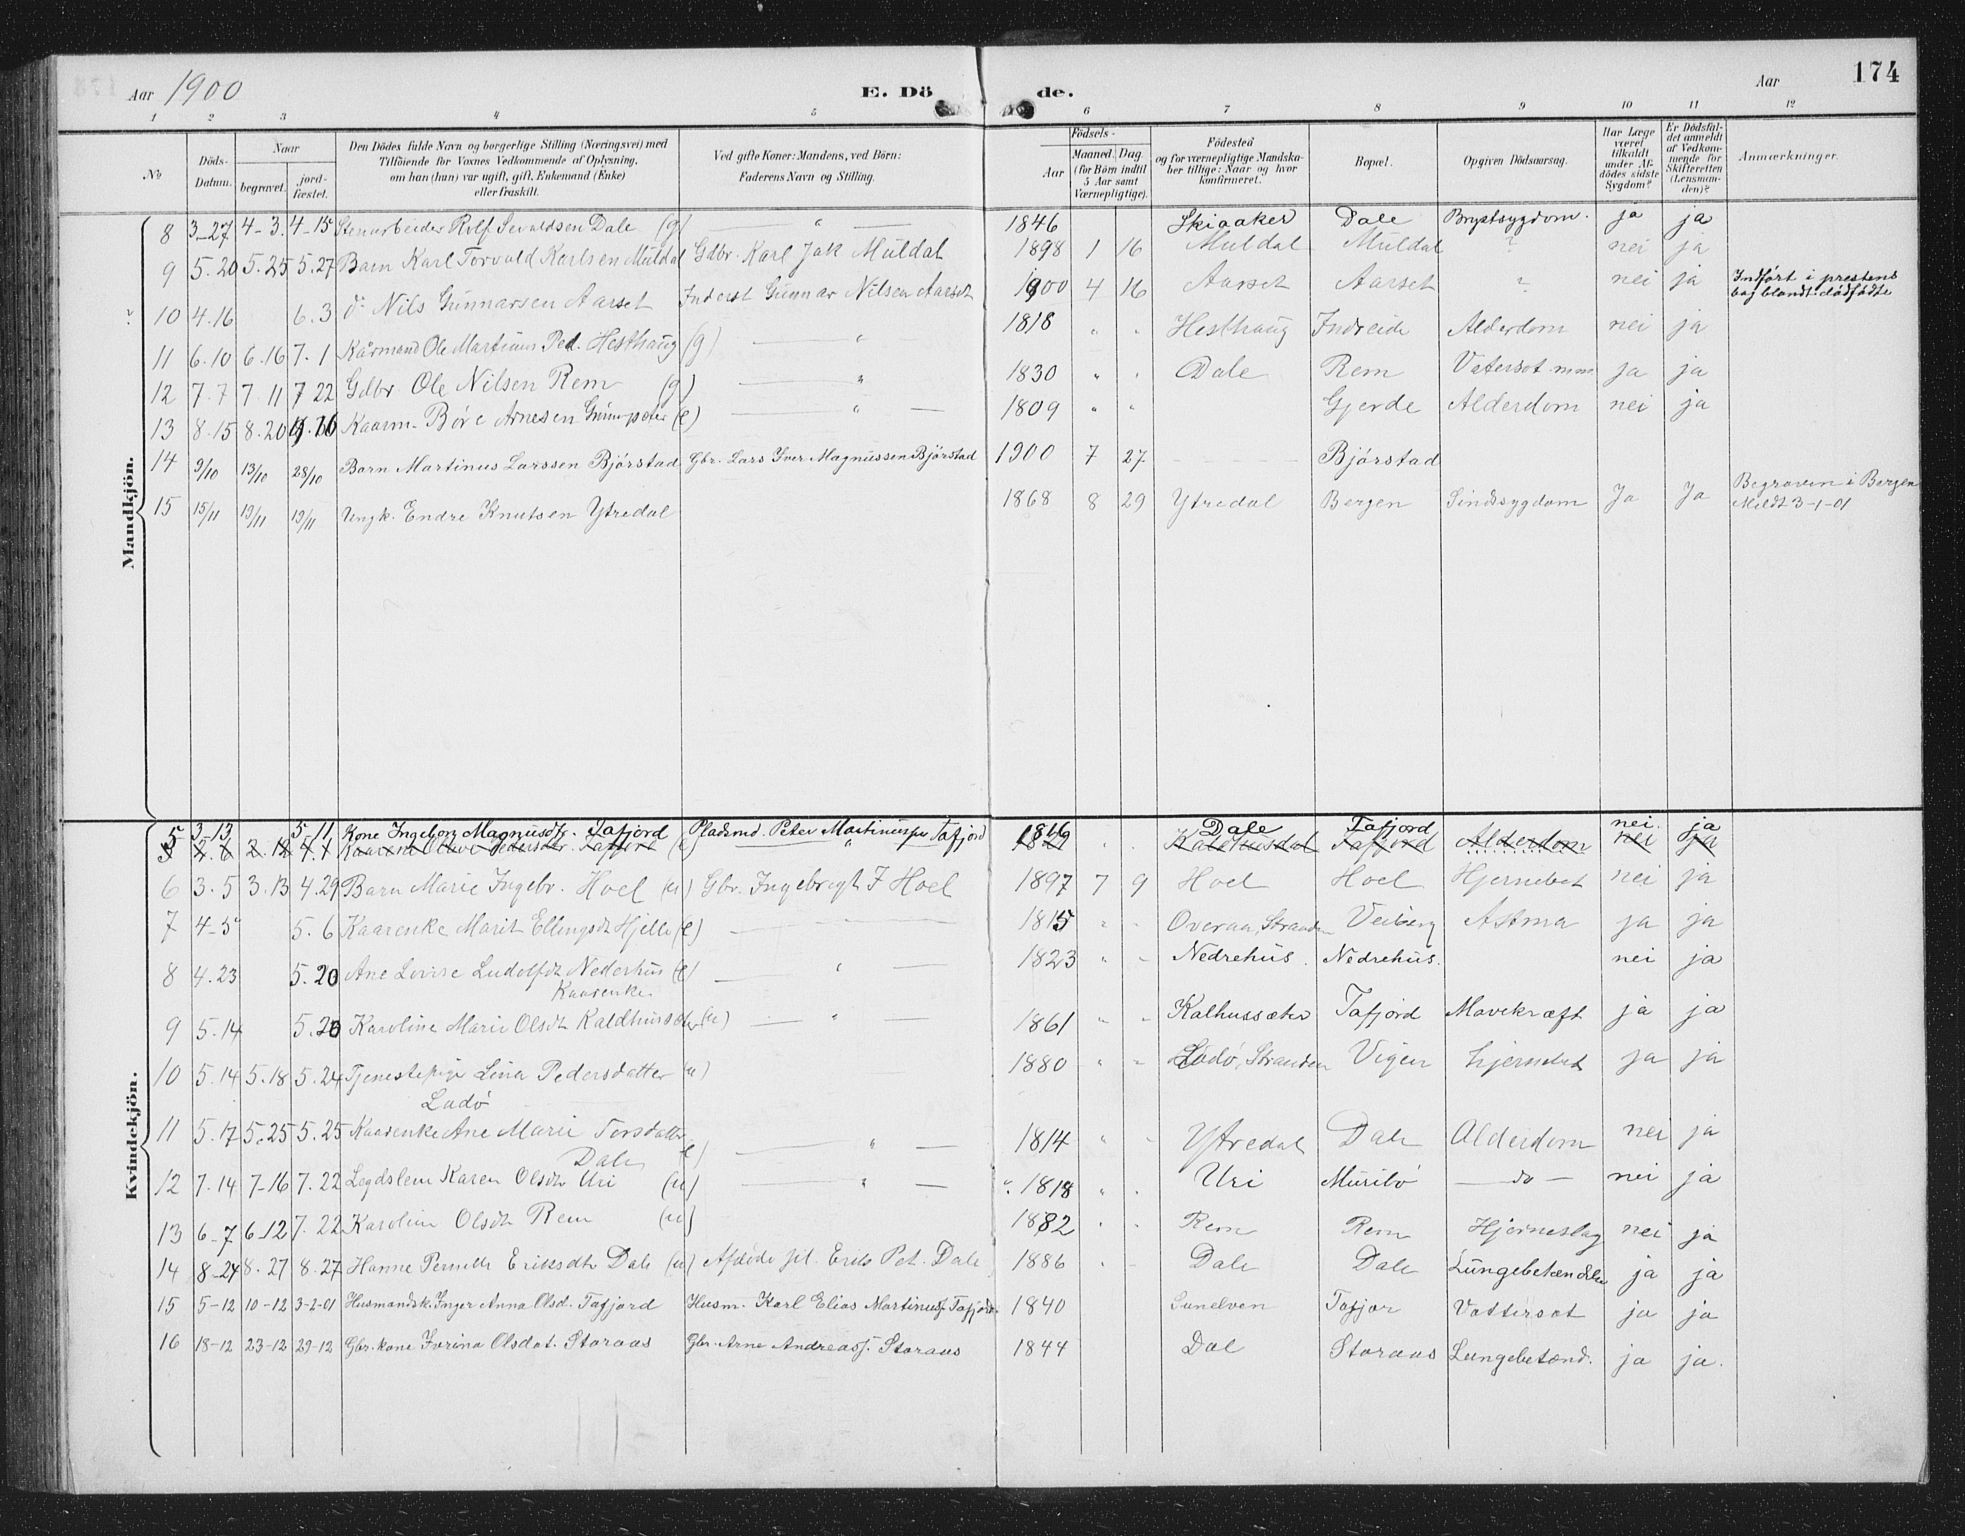 Aar 1900 E. Dö de. Aar 174
1 2 3 4 5 6 7 8 9 10 11 12
No
Döds-Datum.
Naar
begravet.
jord-fæstet.
Den Dödes fulde Navn og borgerlige Stilling (Næringsvei) med
Tilföiende for Voxnes Vedkommende af Oplysning,
om han (hun) var ugift, gift, Enkemand (Enke)
eller fraskilt.
Ved gifte Koner: Mandens, ved Börn:
Faderens Navn og Stilling.
Födsels-
Aar
Maaned. Dag.
(for Börn indtil
5 Aar samt
Værnepligtige).
Födested
og for værnepligtige Mandska-
ber tillige: Naar og hvor
konfirmeret.
Bopæl.
Opgiven Dödsaarsag.
Har Læge
været
tilkaldt
under Af-
dödes sidste
Sygdom?
Er Dödsfal-
det anmeldt
af Vedkom-
mende for
Skifteretten
(Lensman-
den)?
Anmærkninger.
Mandkjön.
8 3-27 4-3. 4-15 Stenarbeider Rolf Dale (g) " 1846 Skiaaker Dale Brystsygdom. ja ja
9 5.20 5.25 5.27 Barn Karl Torvald Karlsen Muldal Gdbr. Karl Jak Muldal 1898 1 16 Muldal Muldal ? nei ja
10 4.16 6.3 do Nils Gunnarsen Aarset Inderst Gunnar Nilsen Aarset 1900 4 16 Aarset Aarset ? nei ja Indført i prestens
bog blandt dødfødte
11 6.10 6.16 7.1 Kårmand Ole Martinus Ped. Hesthaug (g) " 1818 " " Hesthaug Indreide Alderdom nei ja
12 7.7 7.11 7 22 Gdbr Ole Nilsen Rem (g) " 1830 " " Dale Rem Vatersot ja ja
13 8.15 8.20 Kaarm. Böre Arnesen (e) " 1809 " " Gjerde Alderdom nei ja
14 9/10 13/10 28/10 Barn Martinus Larssen Bjørstad Gbr. Lars Iver Magnussen Bjørstad 1900 7 27 Bjørstad
15 15/11 19/11 19/11 Ungk. Endre Knutsen Ytredal 1868 8 29 Ytredal Bergen Sindssygdom Ja Ja Begraven i Bergen
Meldt 3-1-01
Kvindekjön.
5 3-13 5-11 Kone Ingeborg Magnusdtr. Tafjord Pladsmd. Peter Martinus Tafjord 1816 Dale Tafjord nei. ja
Tafjord (e) " 1829 " " Kaldhusdal Tafjord Alderdom nei ja
6 3.5 3.13 4.29 Barn Marie Ingebr. Hoel (u) Gbr. Ingebrigt F Hoel 1897 7 9 Hoel Hoel Hjernebet nei ja
7 4-5 5.6 Kaarenke Marit Ellingsdt Hjelle (e) 1815 " " Overaa, Stranden Veiberg Astma ja ja
8 4.23 5.20 Ane Lovise Ludolfdt Nederhus (e) " 1823 " " Nedrehus. Nedrehus. nei ja
Kaarenke
9 5.14 5.20 Karoline Marie Olsdt Kaldhussæter (u) " 1861 " " Kalhussæter Tafjord Mavekræft ja ja
10 5.14 5.18 5.24 Tjenestepige Lina Pedersdatter (u) 1880 " " Lødø, Stranden Vigen hjernebet ja ja
Ladö
11 5.17 5.25 5.25 Kaarenke Ane Marie Torsdatter
Dale (e) " 1814 " " Ytredal Dale Alderdom nei ja
12 7.14 7-16 7.22 Legdslem Karen Olsdt Uri (u) " 1818 " " Uri Muribö do nei ja
13 6-7 6.12 7.22 Karoline Olsdt Rem (u) 1882 " " Rem Rem Hjerneslag nei ja
14 8-24 8.27 8.27 Hanne Pernille Eriksdt Dale (u) Afdöde Erik Pet. Dale 1886 Dale Dale ja ja
15 5-12 10-12 3-2-01 Husmandsk. Inger Anna Olsd. Tafjord Husm. Karl Elias Martinus. Tafjord. 1840 Tafjor Vattersot ja ja
16 18-12 23-12 29-12 Gbr. kone Ivrina Olsdat. Storaas Gbr. Arne Andreass. Storaas 1844 Dal Storaas Lungebetænd. ja ja.